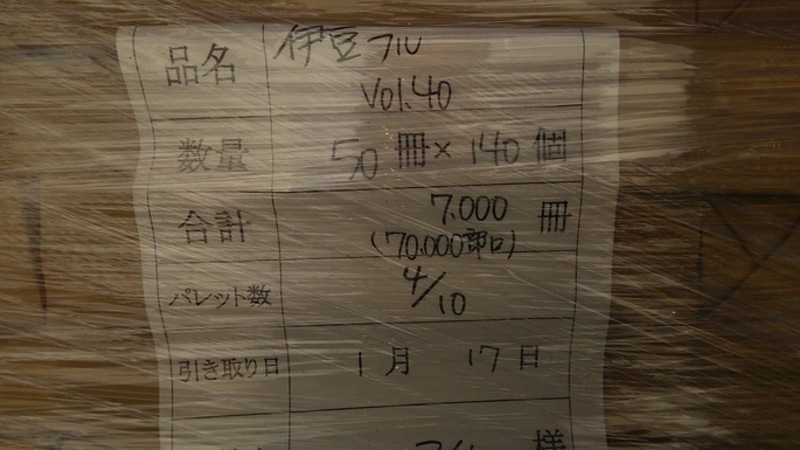 品名 伊豆フル
Vol.40
数量 50 冊 × 140 個
合計 7.000 冊
(70.000部口)
パレット数 4/10
引き取り日 1 月 17 日
様